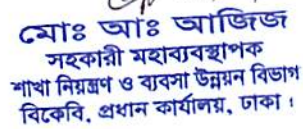 মোঃ আঃ আজিজ
সহকারী মহাব্যবস্থাপক
শাখা নিয়ন্ত্রণ ও ব্যবসা উন্নয়ন বিভাগ
বিকেবি, প্রধান কার্যালয়, ঢাকা।